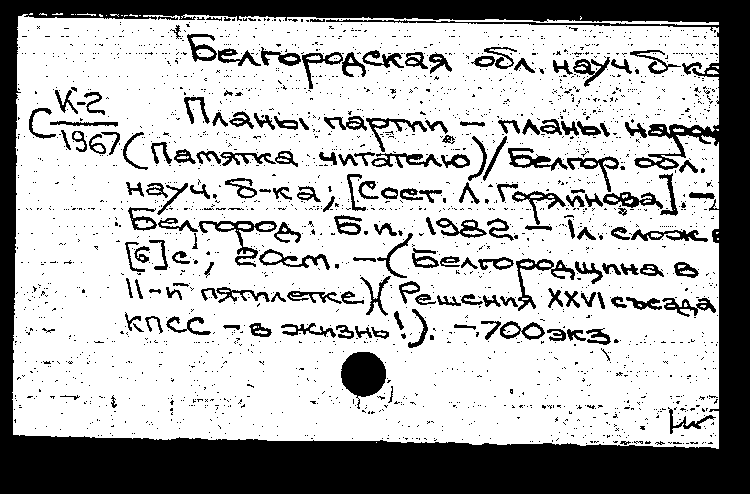 Белгородская обл. науч. б-ка
С К-2
1967
Планы партии — планы народ
(Памятка читателю)/Белгор. обл.
науч. б-ка; [Сост. Л. Горяйнова]. —
Белгород: Б.и., 1982. — 1л. слож в
[6] с.; 20см. — (Белгородщина в
11-й пятилетке) (Решения XXVI съезда
КПСС — в жизнь!). — 700экз.